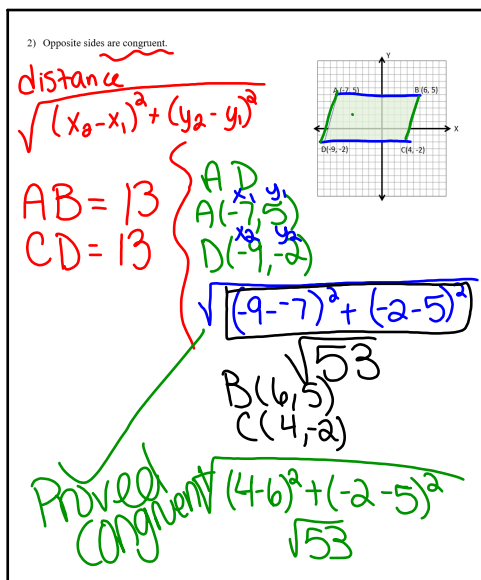 2) Opposite sides are congruent.
distance
√(x₂-x₁)² + (y₂-y₁)²
AB = 13
CD = 13
Y
A (-7, 5)
B (6, 5)
X
D(-9, -2)
C(4, -2)
AD
x₁ y₁
A(-7, 5)
x₂ y₂
D(-9, -2)
√(-9--7)² + (-2-5)²
√53
B(6,5)
C(4,-2)
Proved
congruent
√(4-6)² + (-2-5)²
√53